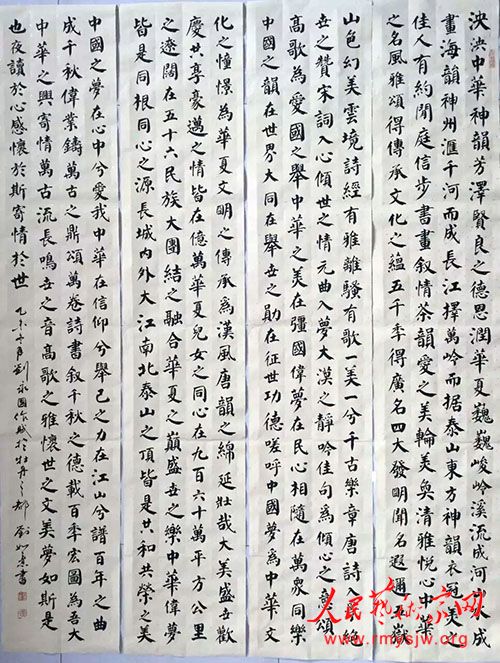 泱泱中華神韻芳澤賢良之德思潤華夏巍巍峻岭溪流成河山水成
畫海韻神州滙千河而成長江擇萬岭而据泰山東方神韻衣冠美之
佳人有約閒庭信步書畫叙情茶韻愛之美輪美奐清雅悦心中華
之名風雅頌得傳承文化之蘊五千季得廣名四大發明聞名遐邇五嶽
山色幻美雲境詩經有雅離騷有歌一美一兮千古樂章唐詩入絕
世之贊宋詞入心傾世之情元曲入夢大漠之靜吟佳句為傾心之章頌
高歌為愛國之舉中華之美在疆國偉夢在民心相隨在萬衆同樂
中國之韻在世界大同在舉世之勛在征世功德嗟呼中國夢為中華文
化之憧憬為華夏文明之傳承為漢風唐韻之綿延壯哉大美盛世歡
慶共享豪邁之情皆在億萬華夏兒女之同心在九百六十萬平方公里
之遼闊在五十六民族大團結之融合華夏之巔盛世之樂中華偉夢
皆是同根同心之源長城内外大江南北泰山之頂皆是共和共榮之美
中國之夢在心中兮愛我中華在信仰兮舉己之力在江山兮譜百年之曲
成千秋偉業鑄萬古之鼎頌萬卷詩書叙千秋之德載百季宏圖為吾大
中華之興寄情萬古流長鳴世之音高歌之雅懷世之文美夢如斯是
也夜讀於心感懷於斯寄情於世 乙未 劉永國作賦於牡丹之都 劉如東書
人民艺术家网
www.rmysjw.org